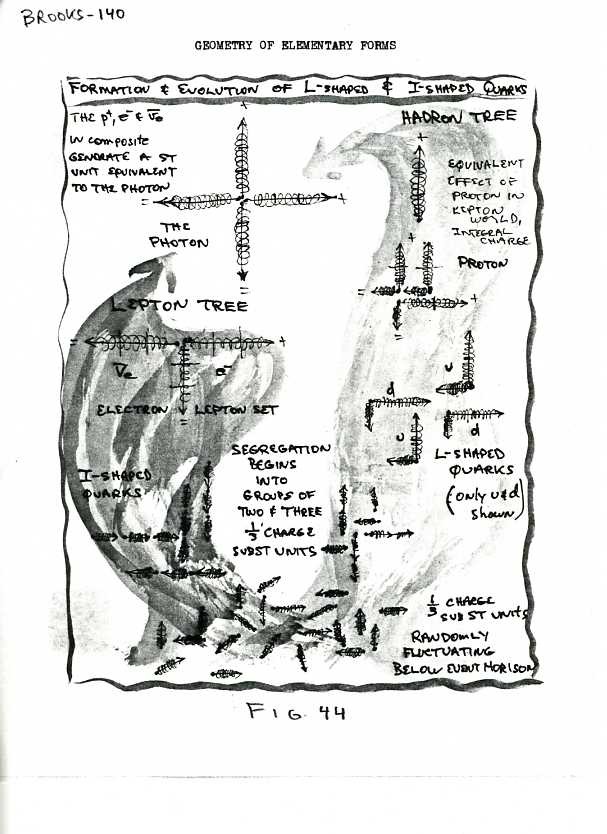 BROOKS-140
GEOMETRY OF ELEMENTARY FORMS
FORMATION & EVOLUTION OF L-SHAPED & I-SHAPED QUARKS
THE p+, e- & ν̅e
IN COMPOSITE
GENERATE A ST
UNIT EQUIVALENT
TO THE PHOTON
+
=
+
=
THE
PHOTON
HADRON TREE
+
EQUIVALENT
EFFECT OF
PROTON IN
LEPTON
WORLD,
INTEGRAL
CHARGE
=
PROTON
+
+
=
+
=
LEPTON TREE
=
+
ν̅e
e-
=
ELECTRON LEPTON SET
u
d
u
d
L-SHAPED
QUARKS
(only u & d
shown)
I-SHAPED
QUARKS
SEGREGATION
BEGINS
INTO
GROUPS OF
TWO & THREE
1/3 CHARGE
SUBST UNITS
1/3 CHARGE
SUB ST UNITS
RANDOMLY
FLUCTUATING
BELOW EVENT HORISON
FIG. 44